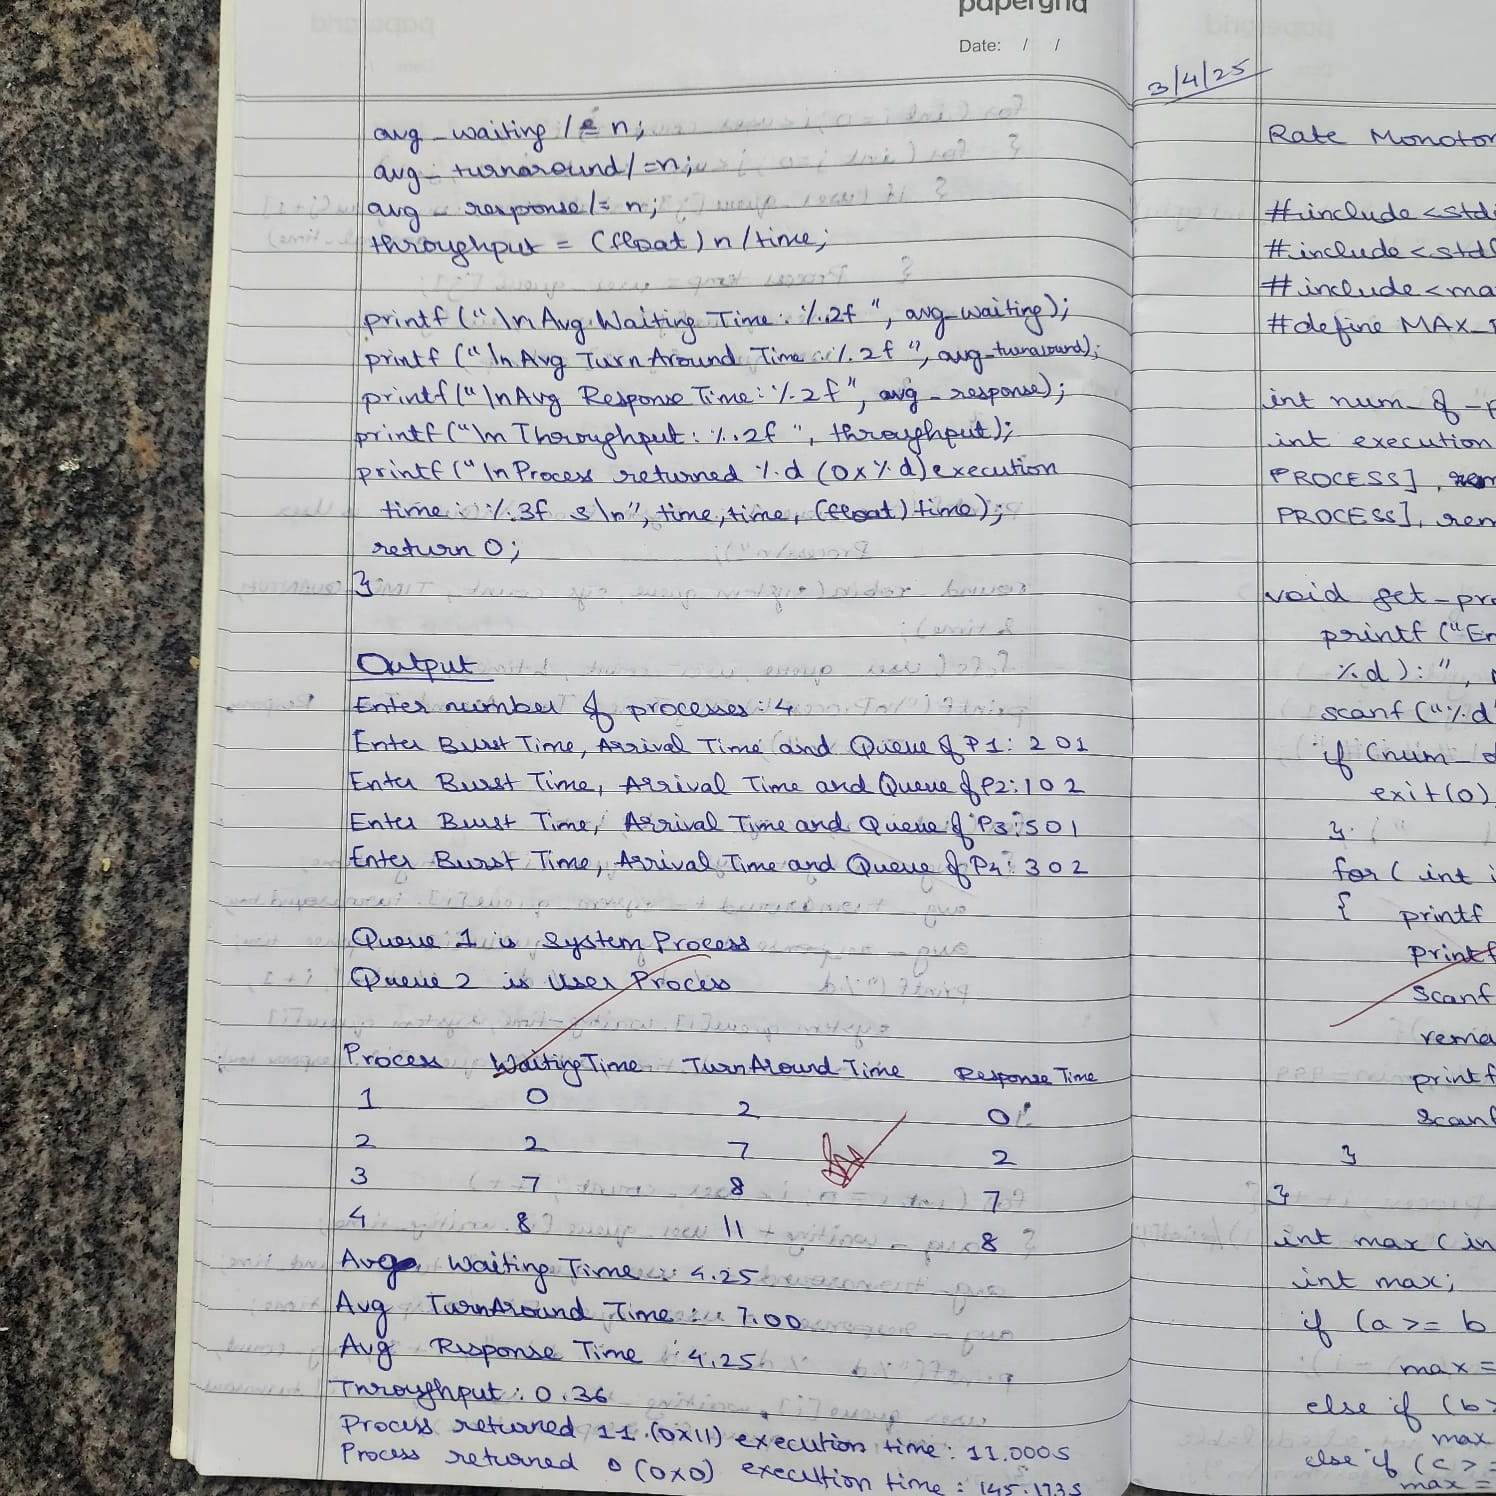 papergrid
Date: / /
avg_waiting /= n;
avg_turnaround /= n;
avg response /= n;
throughput = (float) n / time;
printf ("\n Avg Waiting Time : %.2f ", avg_waiting);
printf (" \n Avg Turn Around Time : %.2f ", avg_turnaround);
printf (" \n Avg Response Time : %.2f ", avg_response);
printf ("\n Throughput : %.2f ", throughput);
printf (" \n Process returned %d (0x%d) execution
time : %.3f s \n", time, time, (float) time);
return 0;
}
Output
Enter number of processes : 4
Enter Burst Time, Arrival Time and Queue of P1: 2 0 1
Enter Burst Time, Arrival Time and Queue of P2: 1 0 2
Enter Burst Time, Arrival Time and Queue of P3: 5 0 1
Enter Burst Time, Arrival Time and Queue of P4: 3 0 2
Queue 1 is System Process
Queue 2 is User Process
Process Waiting Time TurnAround Time Response Time
1 0 2 0
2 2 7 2
3 7 8 7
4 8 11 8
Avg Waiting Time : 4.25
Avg TurnAround Time : 7.00
Avg Response Time : 4.25
Throughput : 0.36
Process returned 11 (0x11) execution time : 11.000s
Process returned 0 (0x0) execution time : 145.173s
3/4/25
Rate Monoton
#include <stdi
#include <stdl
#include <ma
#define MAX_P
int num_of_p
int execution
PROCESS], rem
PROCESS], rem
void get_pro
printf ("En
%d ) : ",
scanf ("%d"
if (num_o
exit(0)
}
for ( int i
{ printf
printf
scanf
rema
printf
scanf
}
}
int max ( in
int max;
if (a >= b
max =
else if (b >
max
else if (c >=
max =